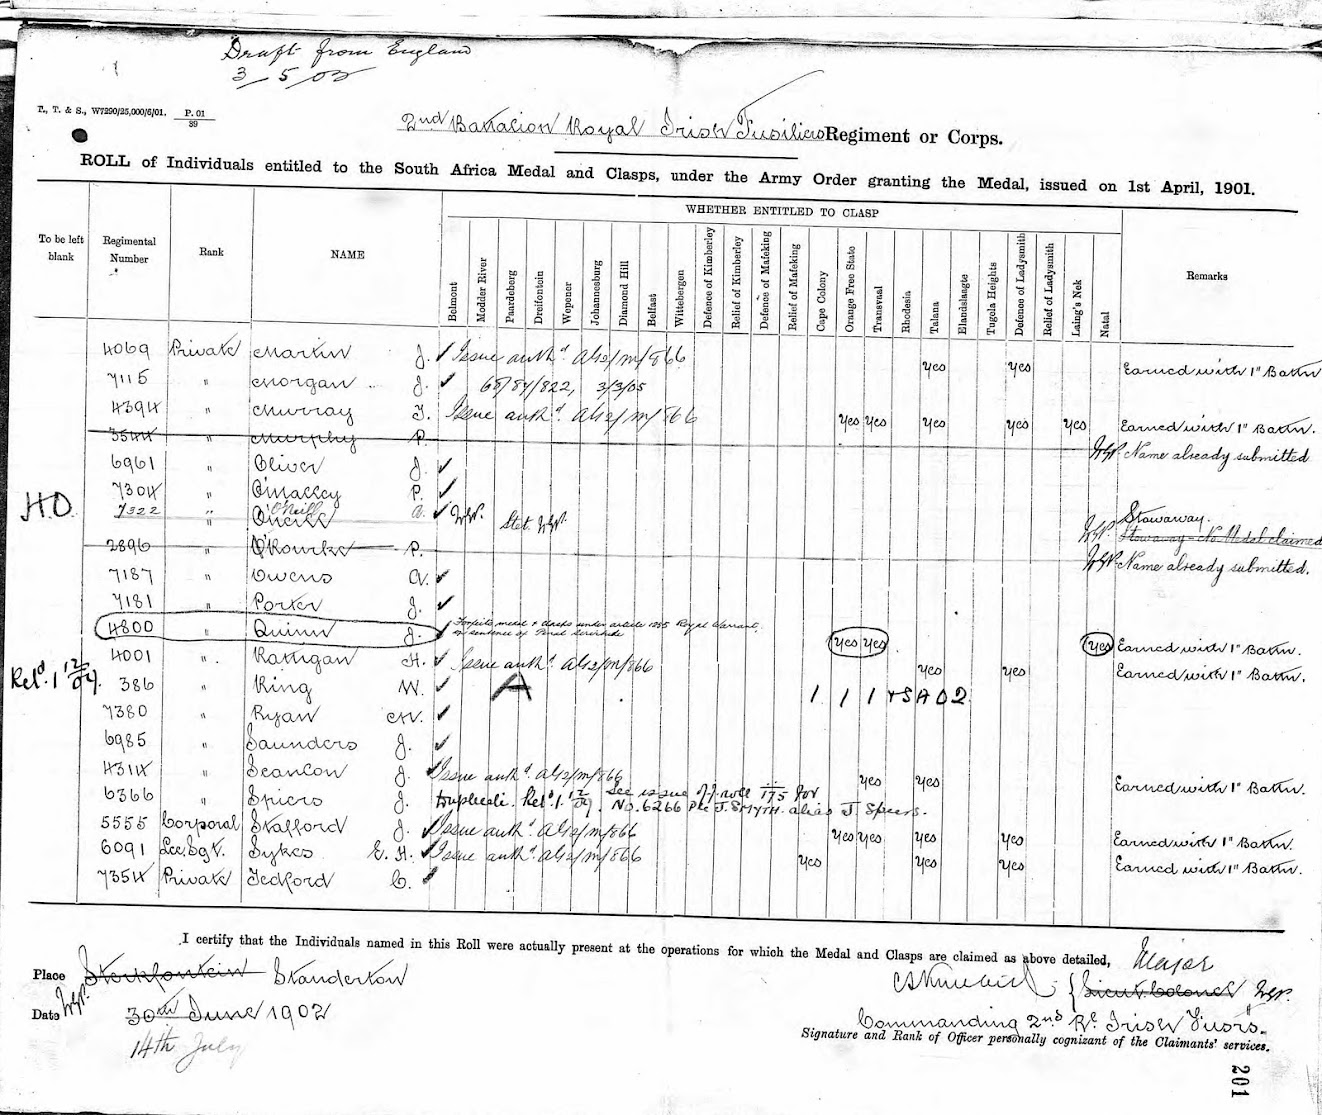 Draft from England
3/5/02
T., T. & S., W7290/25,000/6/01. P. 01
39
2nd Battalion Royal Irish Fusiliers Regiment or Corps.
ROLL of Individuals entitled to the South Africa Medal and Clasps, under the Army Order granting the Medal, issued on 1st April, 1901.
WHETHER ENTITLED TO CLASP
To be left blank Regimental Number Rank NAME Belmont Modder River Paardeberg Dreifontein Wepener Johannesburg Diamond Hill Belfast Wittebergen Defence of Kimberley Relief of Kimberley Defence of Mafeking Relief of Mafeking Cape Colony Orange Free State Transvaal Rhodesia Talana Elandslaagte Tugela Heights Defence of Ladysmith Relief of Ladysmith Laing's Nek Natal Remarks
4069 Private Martin J. Issue authd. yes yes Earned with 1st Battn
7115 " Morgan J. 68/84/822, 3/3/05
4394 " Murray T. Issue authd. yes yes yes yes yes Earned with 1st Battn.
3544 " Murphy P. Name already submitted
6961 " Oliver J.
7304 " O'Malley P.
H.O. 7322 " O'Neill O'Neill A. Stet Stowaway.
Stowaway - No Medal claimed
2896 " O'Rourke P. Name already submitted.
7187 " Owens A.
7181 " Porter J.
4800 " Quinn J. Forfeits medal & clasps under article 1235 Royal Warrant, on sentence of Penal Servitude yes yes yes Earned with 1st Battn.
4001 " Rattigan H. Issue authd. yes yes Earned with 1st Battn.
Reld. 1 12/04. 386 " Ring W. A 1 1 1 + SA 02
7380 " Ryan W.
6985 " Saunders J.
4314 " Scanlon J. Issue authd. yes yes Earned with 1st Battn.
6366 " Spiers J. Duplicate. Reld. 1. 12/04. See issue off roll 175 for
No. 6266 Pte J. SMYTH alias J. Spiers.
5555 Corporal Stafford J. Issue authd. yes yes yes yes Earned with 1st Battn.
6091 Lce. Sgt. Sykes E. H. Issue authd. yes yes yes Earned with 1st Battn.
7354 Private Tedford C.
I certify that the Individuals named in this Roll were actually present at the operations for which the Medal and Clasps are claimed as above detailed,
Place Sterkfontein Standerton Major
Lieut. Colonel
Date 30th June 1902
14th July
Commanding 2nd Rl Irish Fusrs.
Signature and Rank of Officer personally cognizant of the Claimants' services.
201